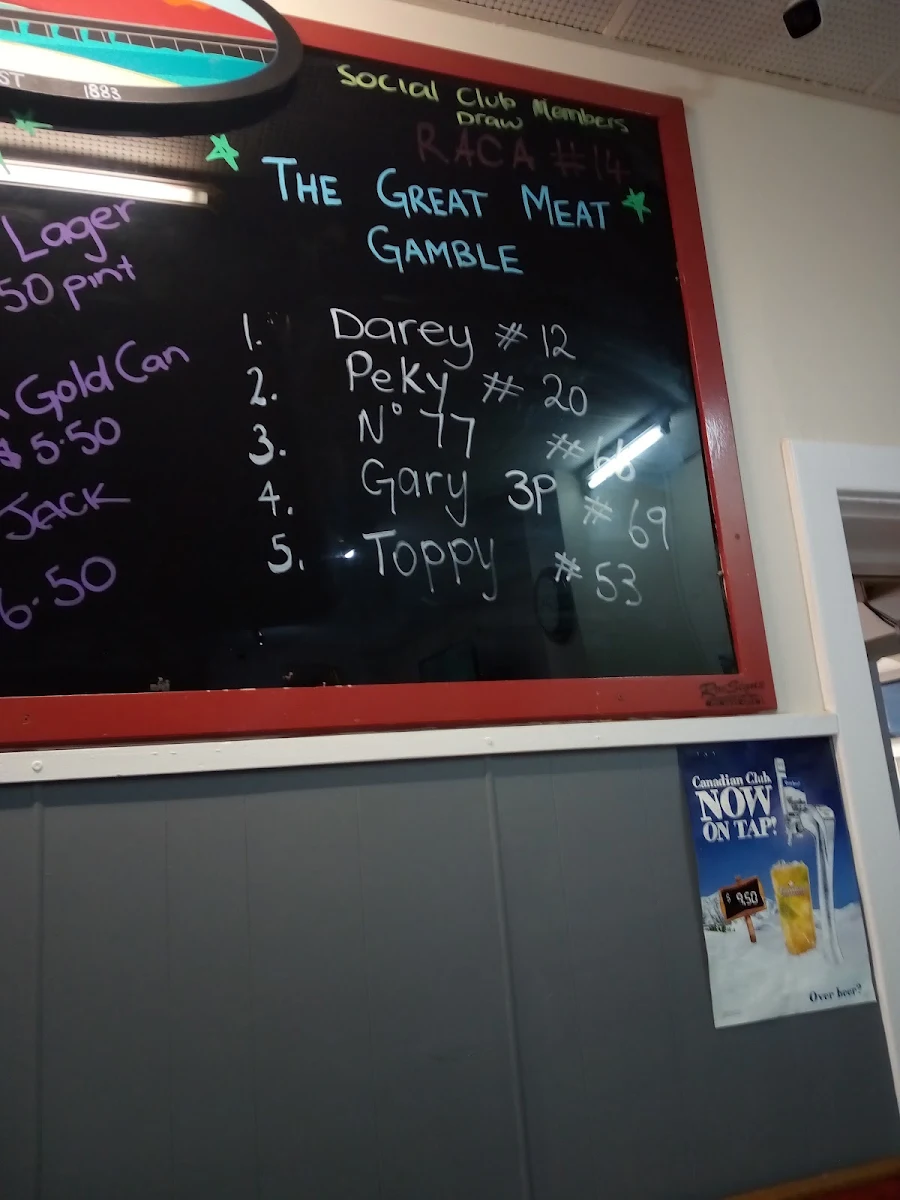 ST 1883
Lager
50 pint
Gold Can
$5.50
JACK
6.50
Social Club Members
Draw
RACA #14
THE GREAT MEAT
GAMBLE
1. Darey #12
2. Peky # 20
3. N° 77 # 66
4. Gary 3p # 69
5. Toppy # 53
Canadian Club
NOW
ON TAP!
$ 9.50
Over beer?